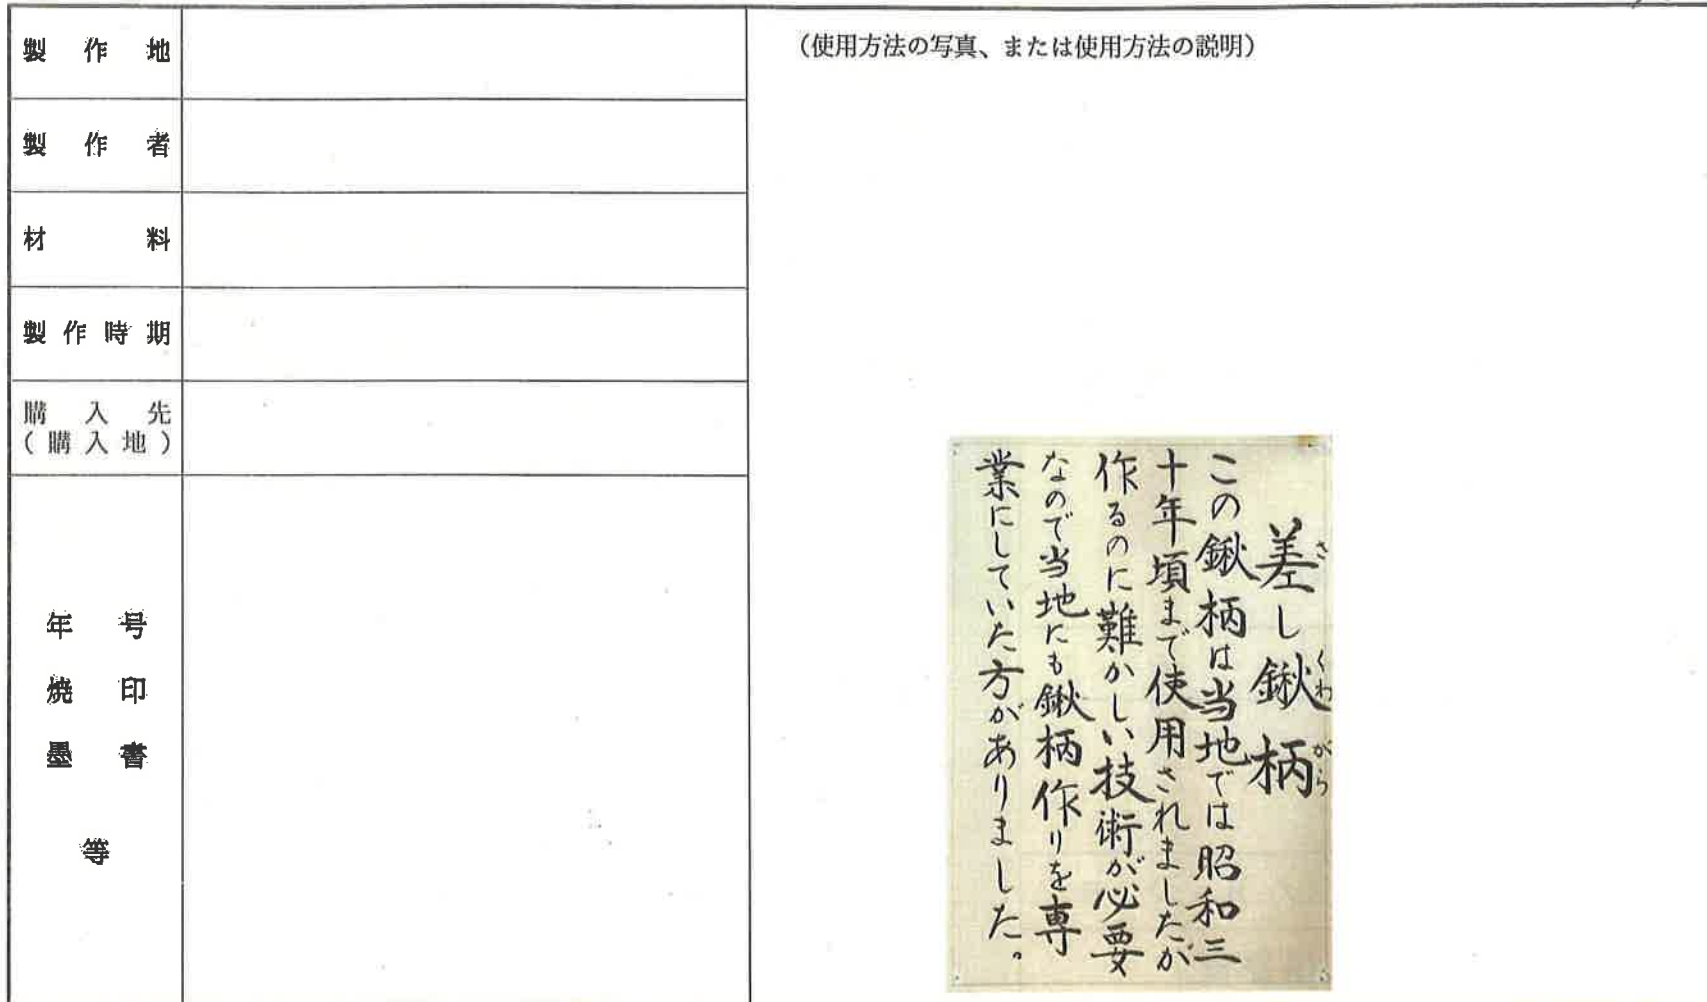 製作地
製作者
材料
製作時期
購入先
（購入地）
年号
焼印
墨書
等
（使用方法の写真、または使用方法の説明）
差し鍬柄
さ くわ がら
この鍬柄は当地では昭和三
十年頃まで使用されましたが
作るのに難かしい技術が必要
なので当地にも鍬柄作りを専
業にしていた方がありました。